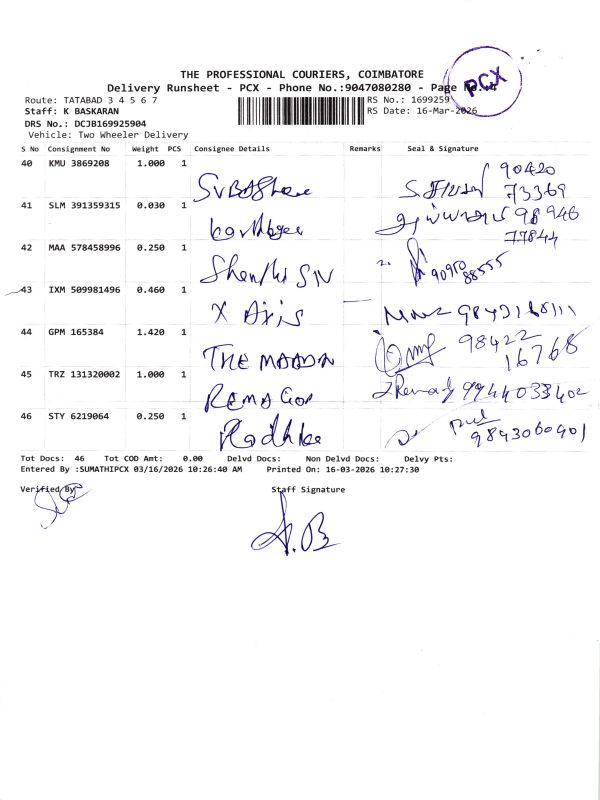 THE PROFESSIONAL COURIERS, COIMBATORE
Delivery Runsheet - PCX - Phone No.:9047080280 - Page No. 4
PCX
Route: TATABAD 3 4 5 6 7
RS No.: 1699259
Staff: K BASKARAN
RS Date: 16-Mar-2026
DRS No.: DCJB169925904
Vehicle: Two Wheeler Delivery
S No Consignment No Weight PCS Consignee Details Remarks Seal & Signature
40 KMU 3869208 1.000 1
90420
73369
41 SLM 391359315 0.030 1
98946
77844
42 MAA 578458996 0.250 1
90950
88555
43 IXM 509981496 0.460 1
X Axis
44 GPM 165384 1.420 1
THE
98422
16768
45 TRZ 131320002 1.000 1
9944033402
46 STY 6219064 0.250 1
Radhika
9843060901
Tot Docs: 46 Tot COD Amt: 0.00 Delvd Docs: Non Delvd Docs: Delvy Pts:
Entered By :SUMATHIPCX 03/16/2026 10:26:40 AM Printed On: 16-03-2026 10:27:30
Verified By
Staff Signature